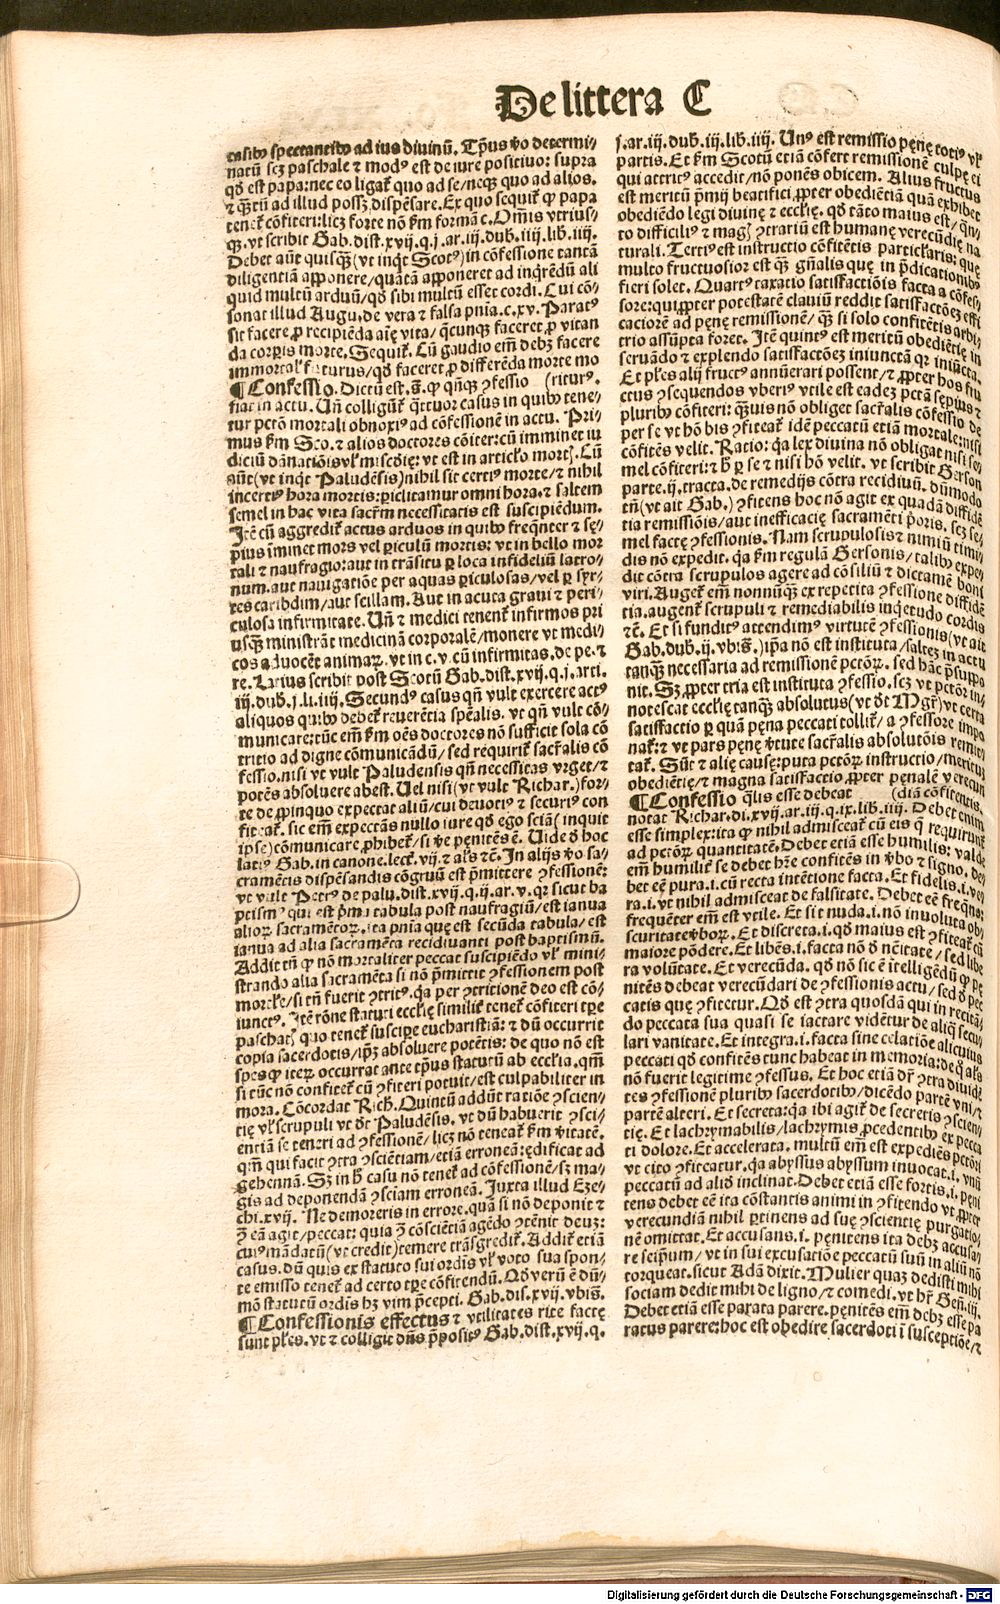 De littera C
casibꝰ spectantibꝰ ad ius diuinū. Tp̄us ꝟo determi⸗
natū scꝫ paschale ⁊ modꝰ est de iure positiuo: supra
qd̄ est papa: nec eo ligat̄ quo ad se/neqꝫ quo ad alios.
⁊ q̄ꝫtū ad illud possꝫ dispēsare. Ex quo sequit̄ ꝙ papa
tenet̄ cōfiteri: licꝫ forte nō ẜm formā c. Om̄is vtrius⸗
qꝫ. vt scribit Gab. dist. xvij. q. j. ar. iij. dub. iiij. lib. iiij.
Debet aūt quisqꝫ (vt inq̇t Scotꝰ) in cōfessione tantā
diligentiā apponere/quātā apponeret ad inq̇rēdū ali
quid multū arduū/qd̄ sibi multū esset cordi. Cui cō⸗
sonat illud Augu. de vera ⁊ falsa pnīa. c. xv. Paratꝰ
sit facere ꝓ recipiēda aīe vita/qcunqꝫ faceret ꝓ vitan
da corpis morte. Sequit̄. Cū gaudio em̄ debꝫ facere
immortal̓ futurus/qd̄ faceret ꝓ differēda morte mo
¶ Confessio. Dictū est. s̄. ꝙ qn̄qꝫ ꝯfessio (riturꝰ.
fiat in actu. Un̄ colligūt̄ q̄ttuor casus in quibꝰ tene⸗
tur pctō mortali obnoxiꝰ ad cōfessionē in actu. Pri⸗
mus ẜm Sco. ⁊ alios doctores cōiter: cū imminet iu
diciū dānatiōis vl̓ miscdie: vt est in articlo mortꝭ. Cū
aūt (vt inq̇t Paludēsis) nihil sit certiꝰ morte/⁊ nihil
incertiꝰ hora mortis: ꝑiclitamur omni hora. ⁊ saltem
semel in hac vita sacr̄m necessitatis est suscipiēdum.
Itē cū aggredit̄ actus arduos in quibꝰ freq̄nter ⁊ sę⸗
pius īminet mors vel ꝑiculū mortis: vt in bello mor
tali ⁊ naufragio: aut in trāsitu ꝑ loca infideliū latro⸗
num. aut nauigatiōe per aquas ꝑiculosas/vel ꝑ syr⸗
tes caribdim/aut scillam. Aut in acuta graui ⁊ peri⸗
culosa infirmitate. Un̄ ⁊ medici tenent̄ infirmos pri
usqꝫ ministrāt medicinā corporalē/monere vt medi⸗
cos aduocēt animaꝝ. vt in c. v. cū infirmitas. de pe. ⁊
re. Latius scribit post Scotū Gab. dist. xvij. q. j. arti.
iij. dub. j. li. iiij. Secundꝰ casus qn̄ vult exercere actꝰ
aliquos quibꝰ debet̄ reuerētia spēalis. vt qn̄ vult cō⸗
municare: tūc em̄ ẜm oēs doctores nō sufficit sola cō
tritio ad digne cōmunicādū/sed requirit̄ sacr̄alis cō
fessio. nisi vt vult Paludensis qn̄ necessitas vrget/⁊
potēs absoluere abest. Uel nisi (vt vult Richar.) for⸗
te de ꝓpinquo expectat aliū/cui deuotiꝰ ⁊ securiꝰ con
fiteat̄. sic em̄ expectās nullo iure qd̄ ego sciā (inquit
ipse) cōmunicare ꝓhibet̄/si ꝟe penitēs ē. Uide ꝺ hoc
latiꝰ Gab. in canone. lect. vij. ⁊ al̓s ⁊c̄. In alijs ꝟo sa⸗
cramētis dispēsandis cōgruū est p̄mittere ꝯfessionē:
vt vult Petrꝰ de palu. dist. xvij. q. ij. ar. v. qꝛ sicut ba
ptismꝰ qui est p̄ma tabula post naufragiū/est ianua
alioꝝ sacramētoꝝ. ita pnīa que est secūda tabula/est
ianua ad alia sacramēta recidiuanti post baptismū.
Addit tn̄ ꝙ nō mortaliter peccat suscipiēdo vl̓ mini⸗
strando alia sacramēta si nō p̄mittit ꝯfessionem post
mortale/si tn̄ fuerit ꝯtritꝰ. q̇a per ꝯtritionē deo est cō⸗
iunctꝰ. Itē rōne statuti eccl̓ię similit̓ tenet̄ cōfiteri tꝑe
paschatꝭ quo tenet̄ suscipe eucharistiā: ⁊ dū occurrit
copia sacerdotis/ip̄ꝫ absoluere potētis: de quo nō est
spes ꝙ iteꝝ occurrat ante tp̄us statutū ab eccl̓ia. qm̄
si tūc nō confitet̄ cū ꝯfiteri potuit/est culpabiliter in
mora. Cōcordat Rich. Quintū addūt ratiōe ꝯscien⸗
tię vl̓ scrupuli vt ꝺt Paludēsis. vt dū habuerit ꝯsci⸗
entiā se teneri ad ꝯfessionē/licꝫ nō teneat̄ ẜm ꝟitatē.
qm̄ qui facit ꝯtra ꝯscientiam/etiā erroneā: ędificat ad
gehennā. Sꝫ in h̓ casu nō tenet̄ ad cōfessionē/sꝫ ma⸗
gis ad deponendā ꝯsciam erroneā. Juxta illud Eze⸗
chi. xvij. Ne demoreris in errore. quā si nō deponit ⁊
ꝯ̄ eā agit/peccat: quia ꝯ̄ cōsciētiā agēdo ꝯtēnit deuꝫ:
cuiꝰ mādatū (vt credit) temere trāsgredit̄. Addit̄ etiā
casus. dū quis ex statuto sui ordīs vl̓ voto sua spon⸗
te emisso tenet̄ ad certo tꝑe cōfitendū. Qd̄ verū ē dū⸗
mō statutū ordīs hꝫ vim p̄cepti. Gab. dis. xvij. vbi s̄.
¶ Confessionis effectus ⁊ vtilitates rite factę
sunt pl̓es. vt ⁊ colligit dn̄s p̄positꝰ Gab. dist. xvij. q.
j. ar. iij. dub. iij. lib. iiij. Unꝰ est remissio pęnę totiꝰ vl̓
partis. Et ẜm Scotū etiā cōfert remissionē culpę ei
qui attritꝰ accedit/nō ponēs obicem. Alius fructus
est meritū p̄mij beatifici. ꝓpter obediētiā quā exhibet
obediēdo legi diuinę ⁊ eccl̓ię. qd̄ tāto maius est/qn̄⸗
to difficiliꝰ ⁊ magꝭ ꝯtrariū est humanę verecūdię na
turali. Tertiꝰ est instructio cōfitētis particlaris: quę
multo fructuosior est qꝫ gn̄alis que in p̄dicationibꝰ
fieri solet. Quartꝰ taxatio satisfactiōis facta a cōfes⸗
sore: qui ꝓpter potestatē clauiū reddit satisfactōeꝫ effi
caciorē ad pęnę remissionē/qꝫ si solo confitētis arbi⸗
trio assūpta foret. Itē quintꝰ est meritū obediētię in
seruādo ⁊ explendo satisfactōeꝫ iniunctā qꝛ iniūcta.
Et pl̓es alij fructꝰ annūerari possent/⁊ ꝓpter hos fru
ctus ꝯsequendos vberiꝰ vtile est eadeꝫ pctā sępius ⁊
pluribꝰ cōfiteri: q̄ꝫuis nō obliget sacr̄alis cōfessio de
per se vt hō bis ꝯfiteat̄ idē peccatū etiā mortale: nisi
cōfitēs velit. Ratio: q̇a lex diuina nō obligat nisi se⸗
mel cōfiteri: ⁊ h̓ ꝑ se ⁊ nisi hō velit. vt scribit Gerson
parte. ij. tracta. de remedijs cōtra recidiuū. dūmodo
tn̄ (vt ait Gab.) ꝯfitens hoc nō agit ex quadā diffidē
tia remissiōis/aut inefficacię sacramēti p̄oris. scꝫ se⸗
mel factę ꝯfessionis. Nam scrupulosis ⁊ nimiū timi⸗
dis nō expedit. q̇a ẜm regulā Gersonis/talibꝰ expe⸗
dit cōtra scrupulos agere ad cōsiliū ⁊ dictamē boni
viri. Auget̄ em̄ nonnūqꝫ ex repetita ꝯfessione diffidē
tia. augent̄ scrupuli ⁊ remediabilis inq̇etudo cordis
⁊c̄. Et si funditꝰ attendimꝰ virtutē ꝯfessionis (vt ait
Gab. dub. ij. vbi s̄.) ip̄a nō est instituta/saltez in actu
tanqꝫ necessaria ad remissionē pctōꝝ. sed hāc p̄suppo
nit. Sꝫ ꝓpter tria est instituta ꝯfessio. scꝫ vt pctōꝝ in⸗
notescat eccl̓ię tanqꝫ absolutus (vt ꝺt Mgr̄) vt certa
satisfactio ꝑ quā pęna peccati tollit̄/a ꝯfessore impo
nat̄: ⁊ vt pars pęnę ꝟtute sacr̄alis absolutōis remit⸗
tat̄. Sūt ⁊ alię causę: puta pctōꝝ instructio/meritū
obediētię/⁊ magna satisfactio ꝓpter penalē verecun
¶ Confessio q̇lis esse debeat (diā confitentis.
notat Richar. di. xvij. ar. iij. q. ix. lib. iiij. Debet enim
esse simplex: ita ꝙ nihil admisceat̄ cū eis q̄ requirunt̄
ad pctōꝝ quantitatē. Debet etiā esse humilis: valde
em̄ humilit̓ se debet hr̄e confitēs in ꝟbo ⁊ signo. de⸗
bet eē pura. i. cū recta intētione facta. Et fidelis. i. ve⸗
ra. i. vt nihil admisceat de falsitate. Debet eē freq̄ns:
frequēter em̄ est vtile. Et sit nuda. i. nō inuoluta ob⸗
scuritate ꝟboꝝ. Et discreta. i. qd̄ maius est ꝯfiteat̄ cū
maiore pōdere. Et libēs. i. facta nō ꝺ nc̄itate/sed libe
ra volūtate. Et verecūda. qd̄ nō sic ē ītelligēdū ꝙ pę
nitēs debeat verecūdari de ꝯfessionis actu/sed ꝺ pec
catis quę ꝯfitetur. Qd̄ est ꝯtra quosdā qui in recitā⸗
do peccata sua quasi se iactare vidētur de aliq̇ secu⸗
lari vanitate. Et integra. i. facta sine celatiōe alicuius
peccati qd̄ confitēs tunc habeat in memoria: de q̇ al̓s
nō fuerit legitime ꝯfessus. Et hoc etiā dr̄ ꝯtra diuidē
tes ꝯfessionē pluribꝰ sacerdotibꝰ/dicēdo partē vni/⁊
partē alteri. Et secreta: q̇a ibi agit̄ de secretis ꝯscien⸗
tię. Et lachrymabilis/lachrymis ꝓcedentibꝰ ex pecca
ti dolore. Et accelerata. multū em̄ est expediēs pctōri
vt cito ꝯfiteatur. q̇a abyssus abyssum inuocat. i. vnū
peccatū ad aliō inclinat. Debet etiā esse fortis. i. peni
tens debet eē ita cōstantis animi in ꝯfitendo vt ꝓpter
verecundiā nihil ꝑtinens ad suę ꝯscientię purgatio⸗
nē omittat. Et accusans. i. penitens ita debꝫ accusa⸗
re seipsum/vt in sui excusatiōe peccatū suū in aliū nō
torqueat. sicut Adā dixit. Mulier quaꝫ dedisti mihi
sociam dedit mihi de ligno/⁊ comedi. vt hr̄ Geñ. iij.
Debet etiā esse parata parere. penitēs em̄ debꝫ esse pa
ratus parere: hoc est obedire sacerdoti ī susceptiōe/⁊
Digitalisierung gefördert durch die Deutsche Forschungsgemeinschaft - DFG